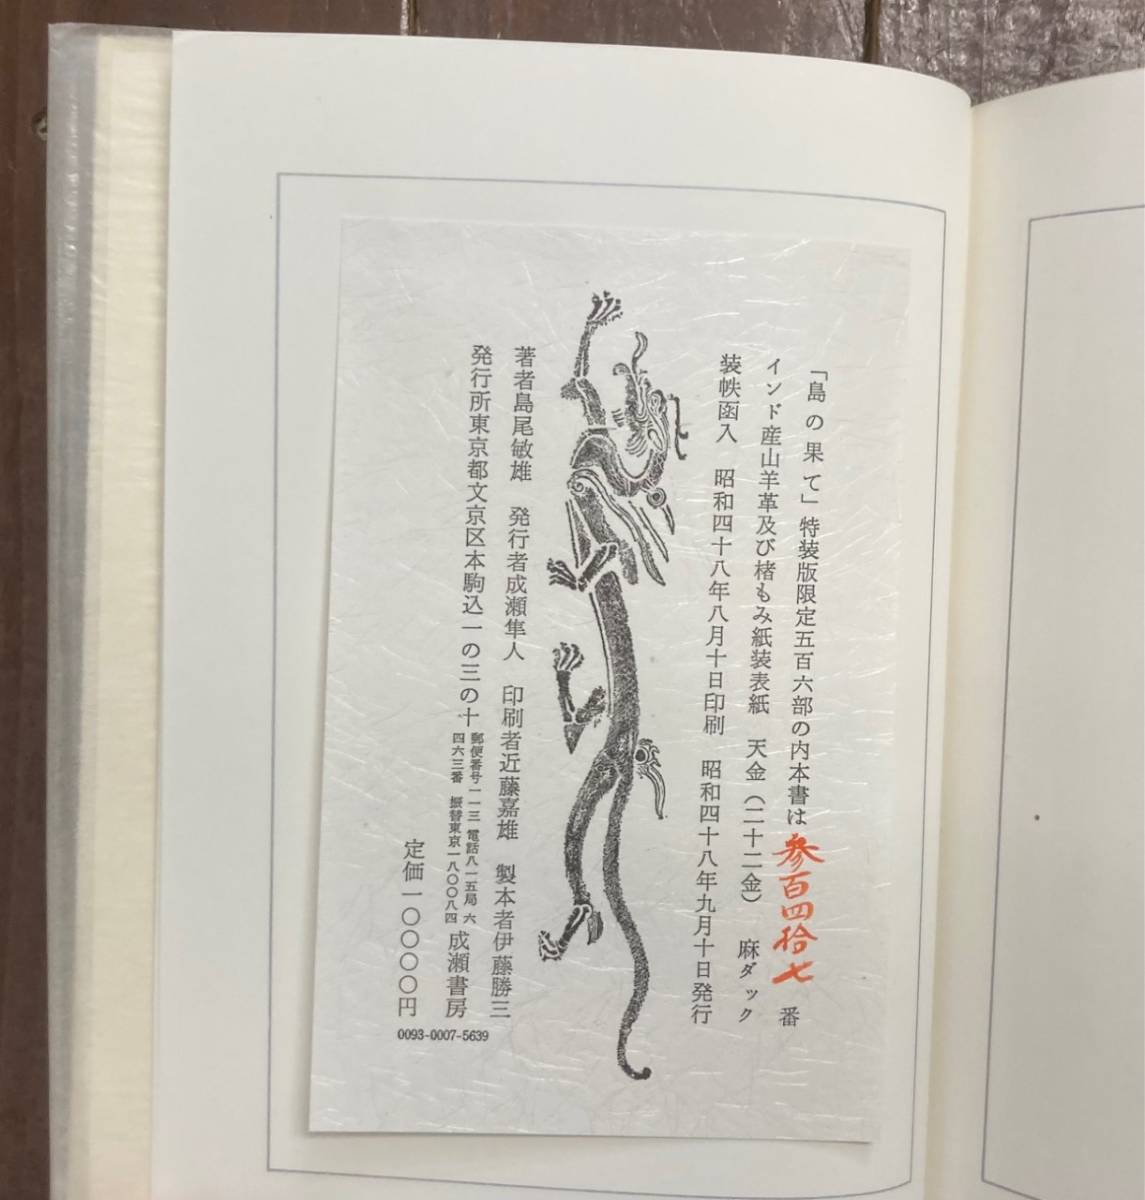 「島の果て」特装版限定五百六部の内本書は参百四拾七番
インド産山羊革及び楮もみ紙装表紙　天金(二十二金)　麻ダック
装帙函入　昭和四十八年八月十日印刷　昭和四十八年九月十日発行
著者島尾敏雄　発行者成瀬隼人　印刷者近藤嘉雄　製本者伊藤勝三
発行所東京都文京区本駒込一の三の十　郵便番号一一三 電話八一五局 六
四六三番　振替東京一八〇〇八四　成瀬書房
定価一〇〇〇〇円
0093-0007-5639